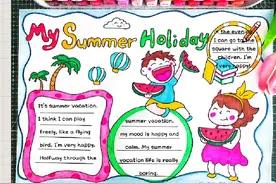 My Summer Holiday
the even
I can go to the
square with the
children. I'm
very happy.
It's summer vacation.
I think I can play
freely, like a flying
bird. I'm very happy.
Halfway through the
summer vacation,
my mood is happy and
calm. My summer
vacation life is really
boring.